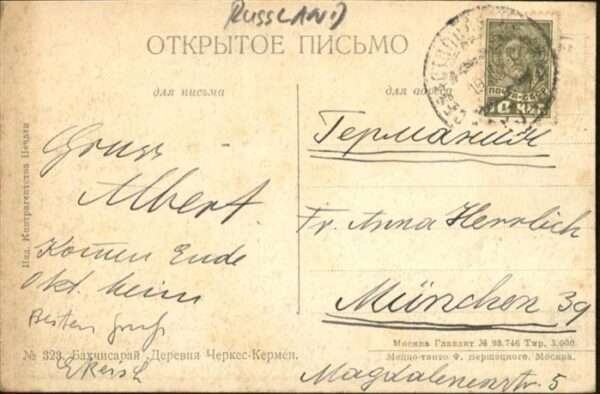 RUSSLAND
ОТКРЫТОЕ ПИСЬМО
для письма
для адреса
ПОЧТА СССР
10 КОП.
Изд. Контрагентства Печати
Gruss
Albert.
Komen Ende
Okt. heim
Besten Gruß
№ 323. Бахчисарай. Деревня Черкес-Кермен.
Германия
Fr. Anna Herrlich
München 39
Москва Главлит № 98.746 Тир. 3.000
Москва.
Magdalenenstr. 5